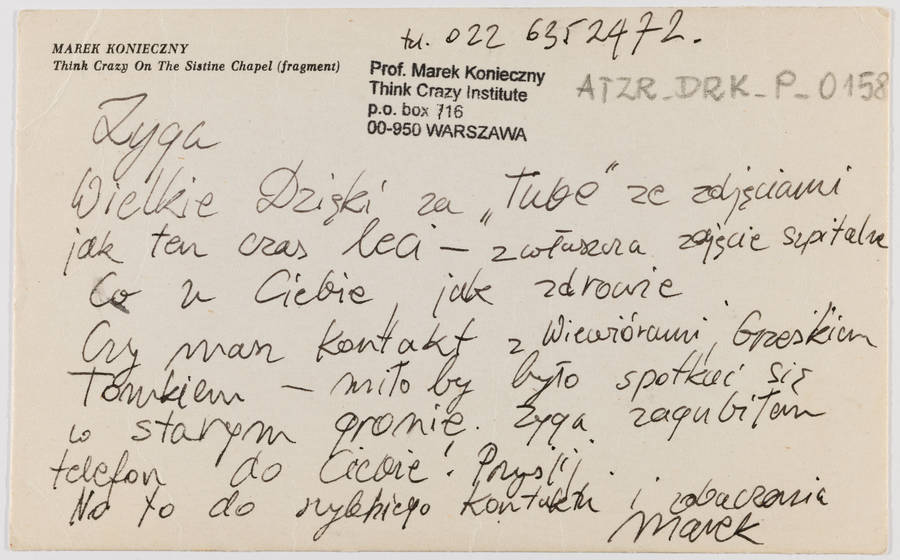 tel. 022 6352472.
MAREK KONIECZNY
Think Crazy On The Sistine Chapel (fragment)
Prof. Marek Konieczny
Think Crazy Institute
p.o. box 716
00-950 WARSZAWA
ATZR_DRK_P_0158
Zyga
Wielkie Dzięki za „Tubę" ze zdjęciami
jak ten czas leci – zwłaszcza zdjęcie szpitalne
Co u Ciebie, jak zdrowie
Czy masz kontakt z Wiewiórami, Grześkiem
Tomkiem – miło by było spotkać się
w starym gronie. Zyga zagubiłem
telefon do Ciebie! Przyślij.
No to do szybkiego kontaktu i zobaczenia
Marek